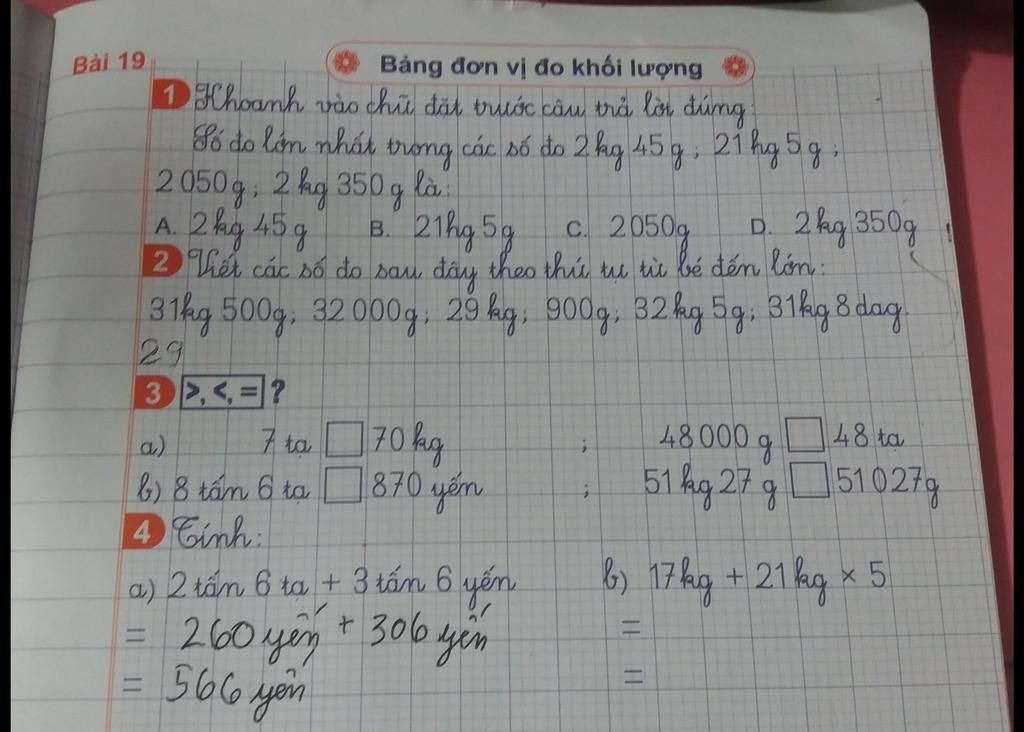 Bài 19
Bảng đơn vị đo khối lượng
1 Khoanh vào chữ đặt trước câu trả lời đúng:
Số đo lớn nhất trong các số đo 2kg 45g; 21hg 5g;
2050g; 2kg 350g là:
A. 2kg 45g B. 21hg 5g C. 2050g D. 2kg 350g
2 Viết các số đo sau đây theo thứ tự từ bé đến lớn:
31kg 500g; 32 000g; 29kg; 900g; 32kg 5g; 31kg 8dag.
29
3 >, <, = ?
a) 7 tạ □ 70kg ; 48000 g □ 48 tạ
b) 8 tấn 6 tạ □ 870 yến ; 51kg 27g □ 51027g
4 Tính:
a) 2 tấn 6 tạ + 3 tấn 6 yến b) 17kg + 21kg × 5
= 260 yến + 306 yến =
= 566 yến =